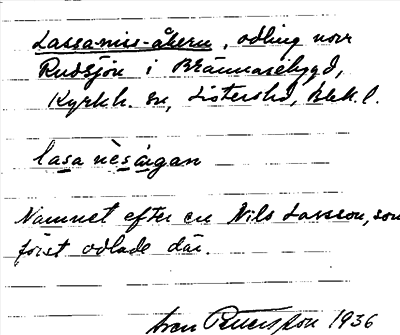 Lassa-niss-åkern, odling norr
Rudsjön i Brännarebygd,
Kyrkh. sn, Listershd, Blek. l.
lasa nèsángan
Namnet efter en Nils Larsson, som
först odlade där.
Sven Petersson 1936